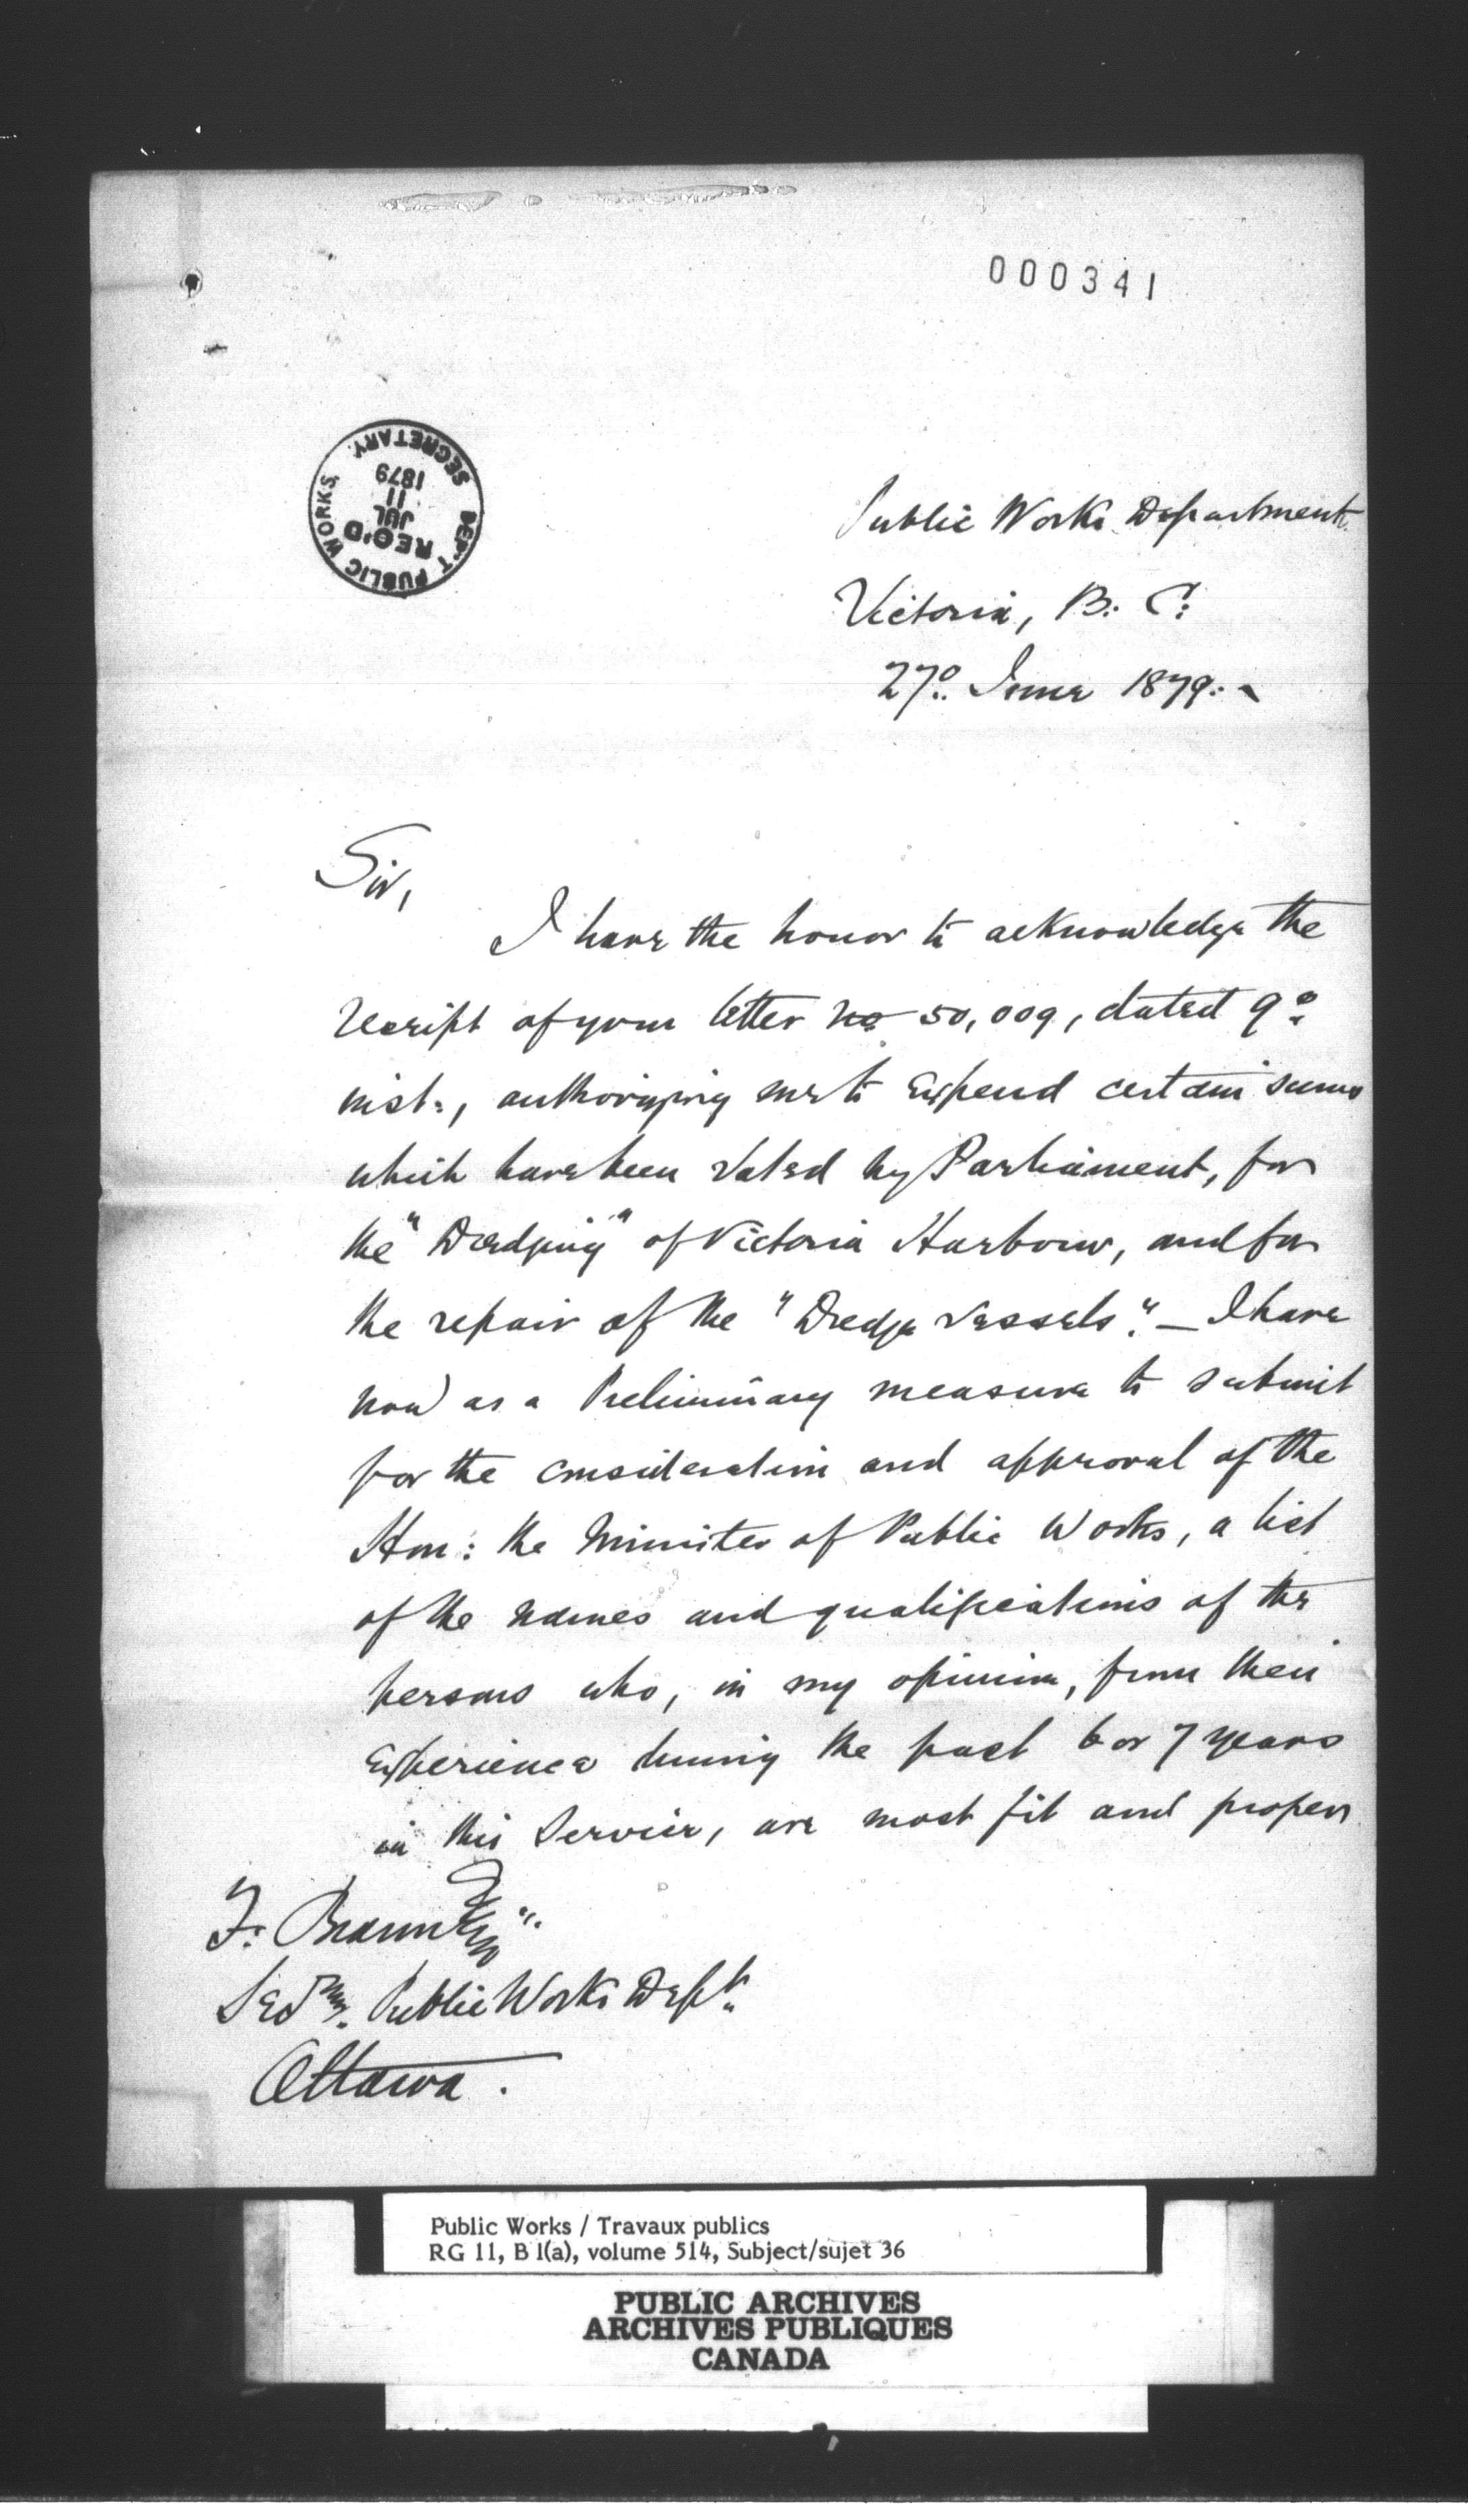 000341
DEP'T PUBLIC WORKS,
REC'D
JUL
11
1879
SECRETARY.
Public Works Department.
Victoria, B. C.
27º June 1879.
Sir,
I have the honor to acknowledge the
receipt of your letter No 50,009, dated 9º
inst., authorizing me to expend certain sums
which have been voted by Parliament, for
the "Dredging" of Victoria Harbour, and for
the repair of the "Dredge Vessels". — I have
now as a Preliminary measure to submit
for the consideration and approval of the
Hon: the Minister of Public Works, a list
of the names and qualifications of the
persons who, in my opinion, from their
experience during the past 6 or 7 years
in this Service, are most fit and proper
F. Braun Esq.
Secy. Public Works Dept.
Ottawa.
Public Works / Travaux publics
RG 11, B 1(a), volume 514, Subject/sujet 36
PUBLIC ARCHIVES
ARCHIVES PUBLIQUES
CANADA